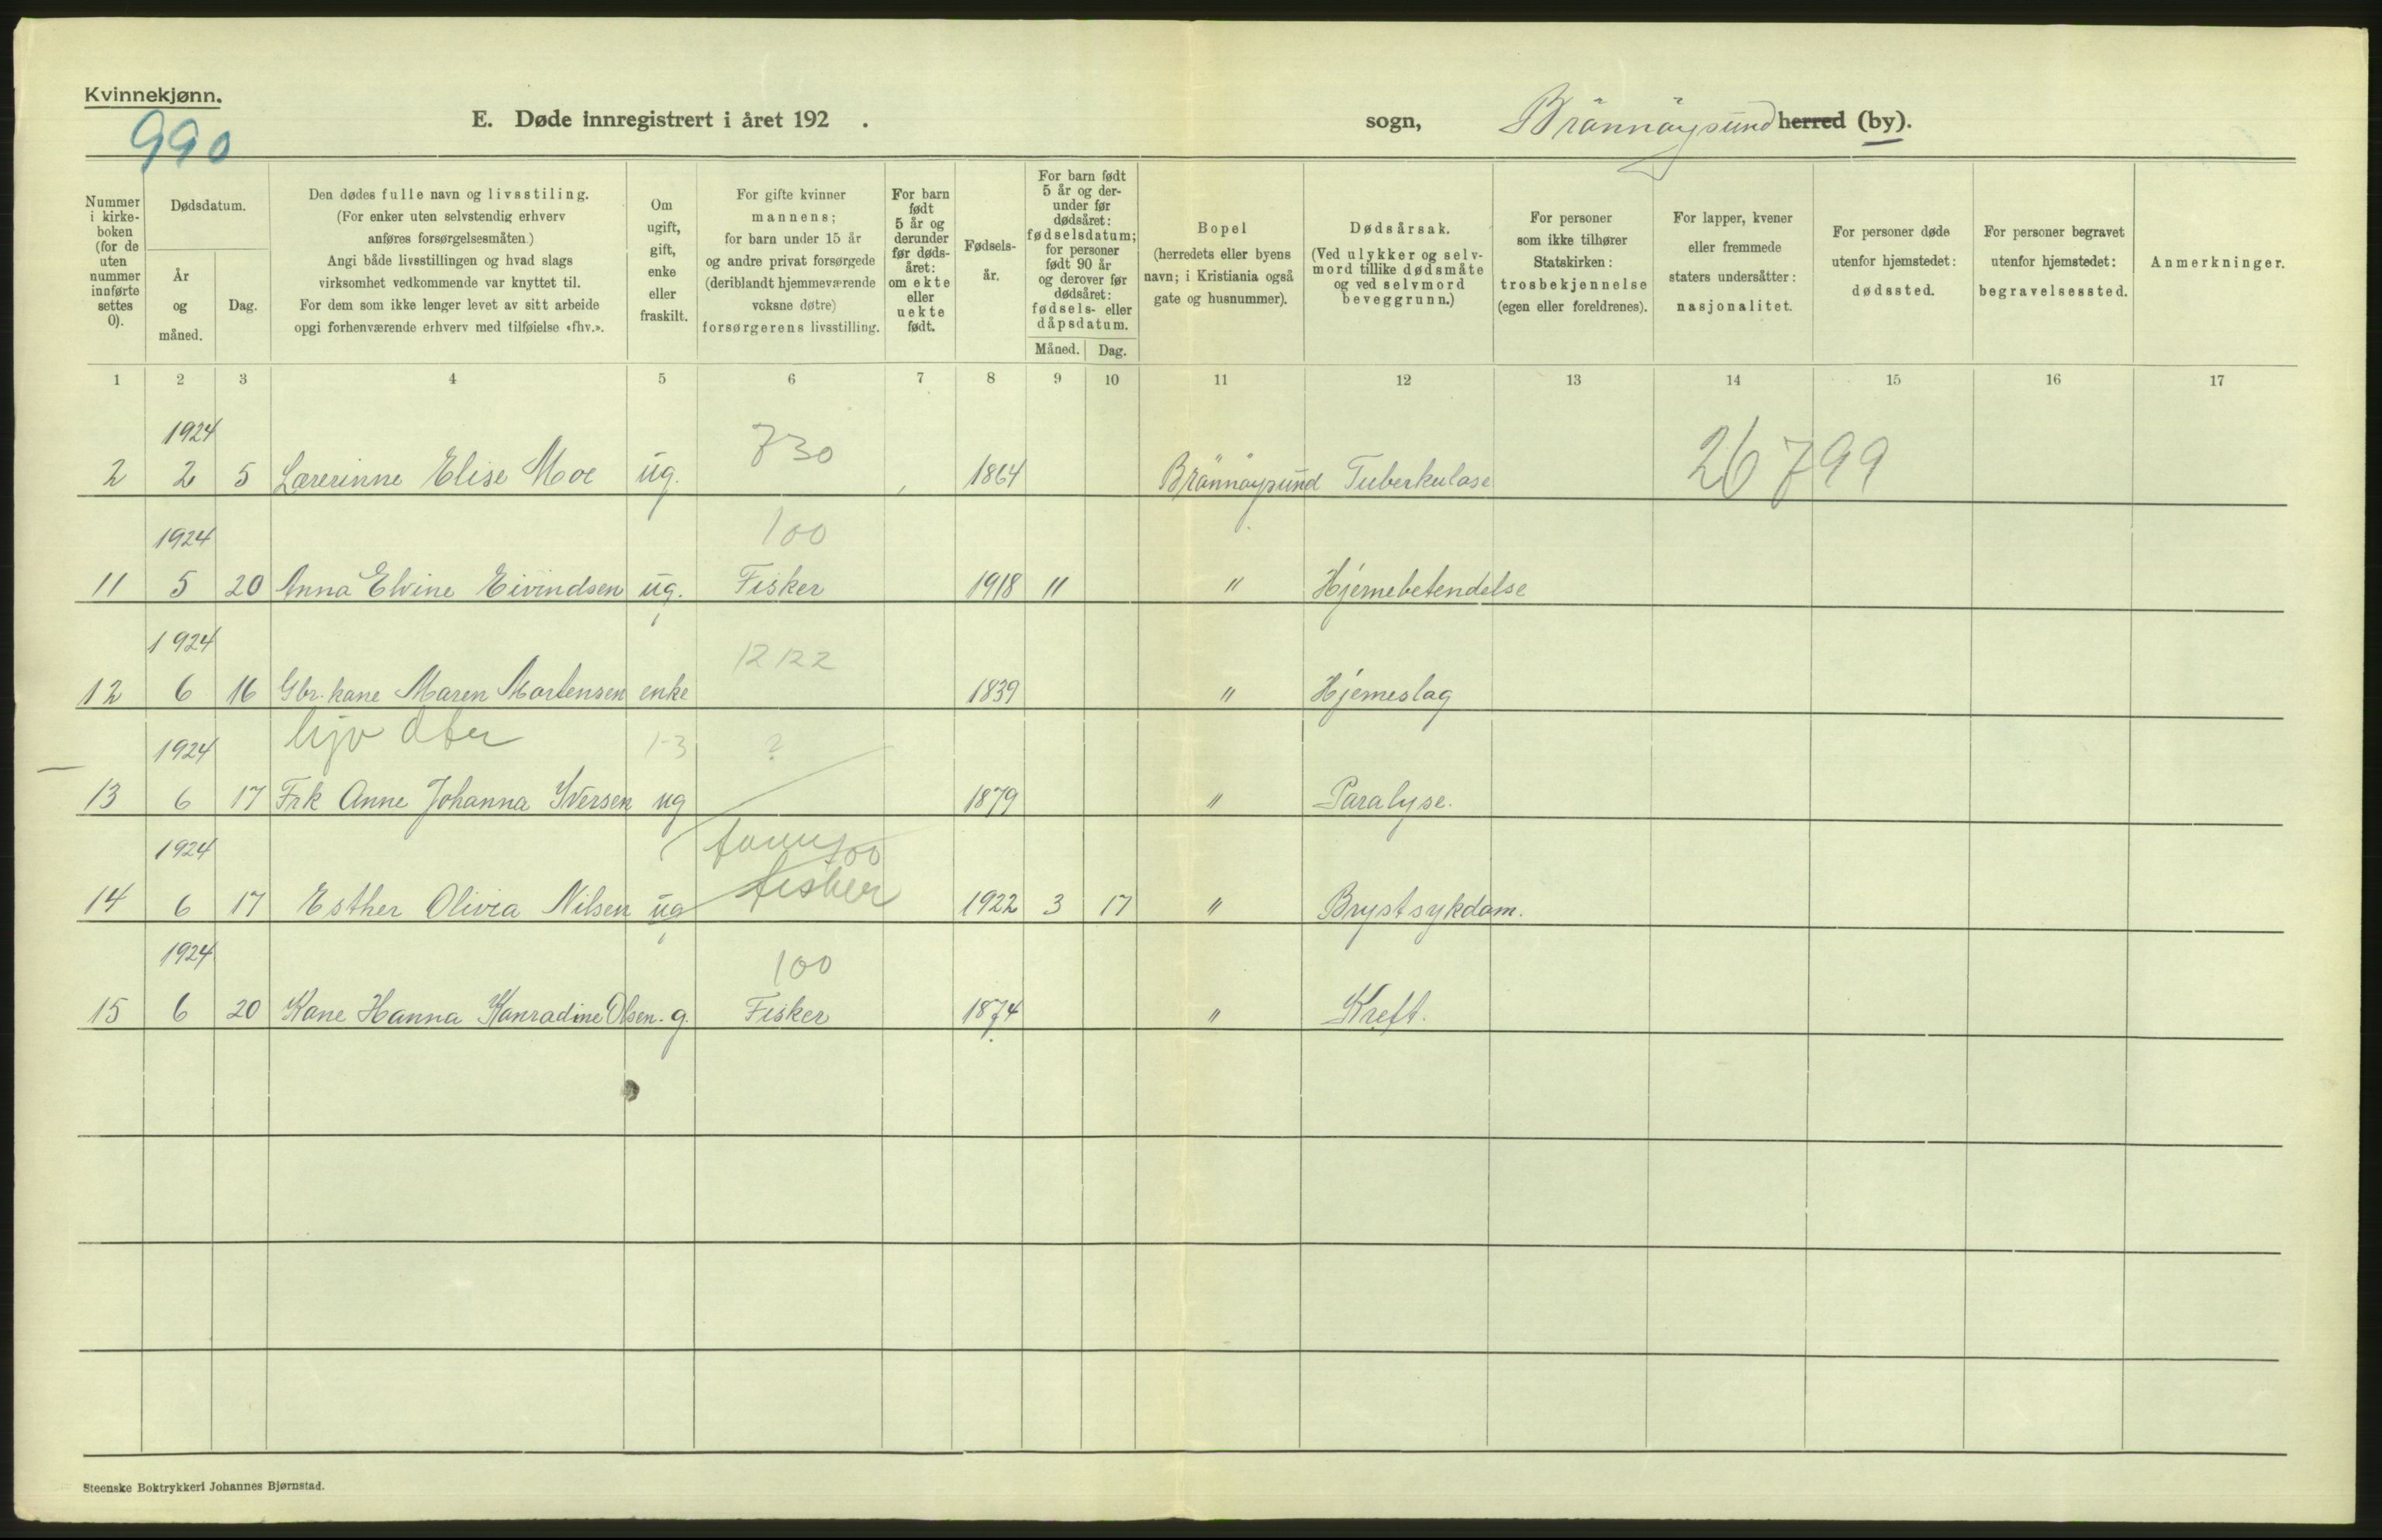 Kvinnekjønn.
990
E. Døde innregistrert i året 192 .
sogn, Brønnøysund herred (by).
Nummer i kirke- boken (for de uten nummer innførte settes 0).
Dødsdatum.
År og måned.
Dag.
Den dødes fulle navn og livsstiling.
(For enker uten selvstendig erhverv
anføres forsørgelsesmåten.)
Angi både livsstillingen og hvad slags
virksomhet vedkommende var knyttet til.
For dem som ikke lenger levet av sitt arbeide
opgi forhenværende erhverv med tilføielse «fhv.».
Om ugift, gift, enke eller fraskilt.
For gifte kvinner
mannens;
for barn under 15 år
og andre privat forsørgede
(deriblandt hjemmeværende
voksne døtre)
forsørgerens livsstilling.
For barn født 5 år og derunder før døds- året: om ekte eller uekte født.
Fødsels- år.
For barn født 5 år og der- under før dødsåret: fødselsdatum; for personer født 90 år og derover før dødsåret: fødsels- eller dåpsdatum.
Måned.
Dag.
Bopel
(herredets eller byens
navn; i Kristiania også
gate og husnummer).
Dødsårsak.
(Ved ulykker og selv-
mord tillike dødsmåte
og ved selvmord
beveggrunn.)
For personer
som ikke tilhører
Statskirken:
trosbekjennelse
(egen eller foreldrenes).
For lapper, kvener
eller fremmede
staters undersåtter:
nasjonalitet.
For personer døde
utenfor hjemstedet:
dødssted.
For personer begravet
utenfor hjemstedet:
begravelsessted.
Anmerkninger.
1 2 3 4 5 6 7 8 9 10 11 12 13 14 15 16 17
1924 730
2 2 5 Lærerinne Elise Moe ug. 1864 Brønnøysund Tuberkulose 26799
1924 100
11 5 20 Anna Elvine Eivindsen ug. Fisker 1918 11 " Hjernebetendelse
1924 12 122
12 6 16 Gbr. kone Maren Mortensen enke 1839 " Hjerneslag
1924 1-3 ?
13 6 17 Frk Anne Johanna Iversen ug 1879 " Paralyse.
1924
14 6 17 Esther Olivia Nilsen ug fisker 1922 3 17 " Brystsykdom.
1924 100
15 6 20 Kone Hanna Konradine Olsen. g. Fisker 1874 " Kreft.
Steenske Boktrykkeri Johannes Bjørnstad.